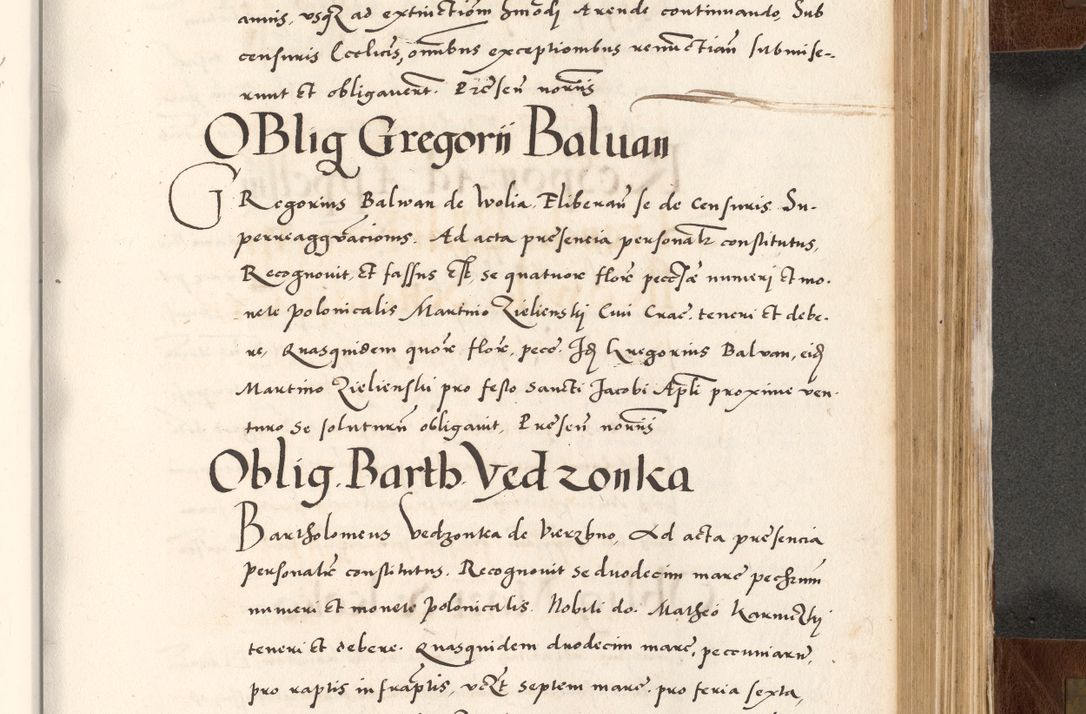 annis, usq₃ ad extinctiōm hmōdi Arende continuando, Sub
censuris Ecclīcis, om̄ibus exceptionibus renūctiaīi submise-
runt Et obligaverūt. Pr̄esen̄ nor̄iis
OBlig Gregorii Baluan
GRegorius Balwan de Wolia, Eliberaīi se de Censuris Su-
perreaggrāacionis. Ad acta presencia personalr̄ constitutus,
Recognovit, Et fassus Est, se quatuor flore͂ pecc͂iæ numeri Et mo-
nete Polonicalis Martino Zielienskj Civi Crac͂. teneri Et debe-
re, Quasquidem quōr flore͂, pecc͂. Idē Gregorius Balvan, eidē
Martino Zielienski pro festo Sancti Jacobi Apl̄i proxime ven-
turo Se soluturū obligavit, Pr̄esen̄ nor̄iis
Oblig. Barth. Vedzonka
Bartholomeus Vedzonka de Vierzbno, Ad acta presencia
personalr̄ constitutus. Recognovit se duodecim marc͂ pec̄hrium
numeri Et monete Polonicalis. Nobili do. Matheo Karniczkj
teneri Et debere. Quasquidem duodecim marc͂, pecuniarū,
pro raptis infrap̄tis, vcz̄t septem marc͂. pro feria sexta,